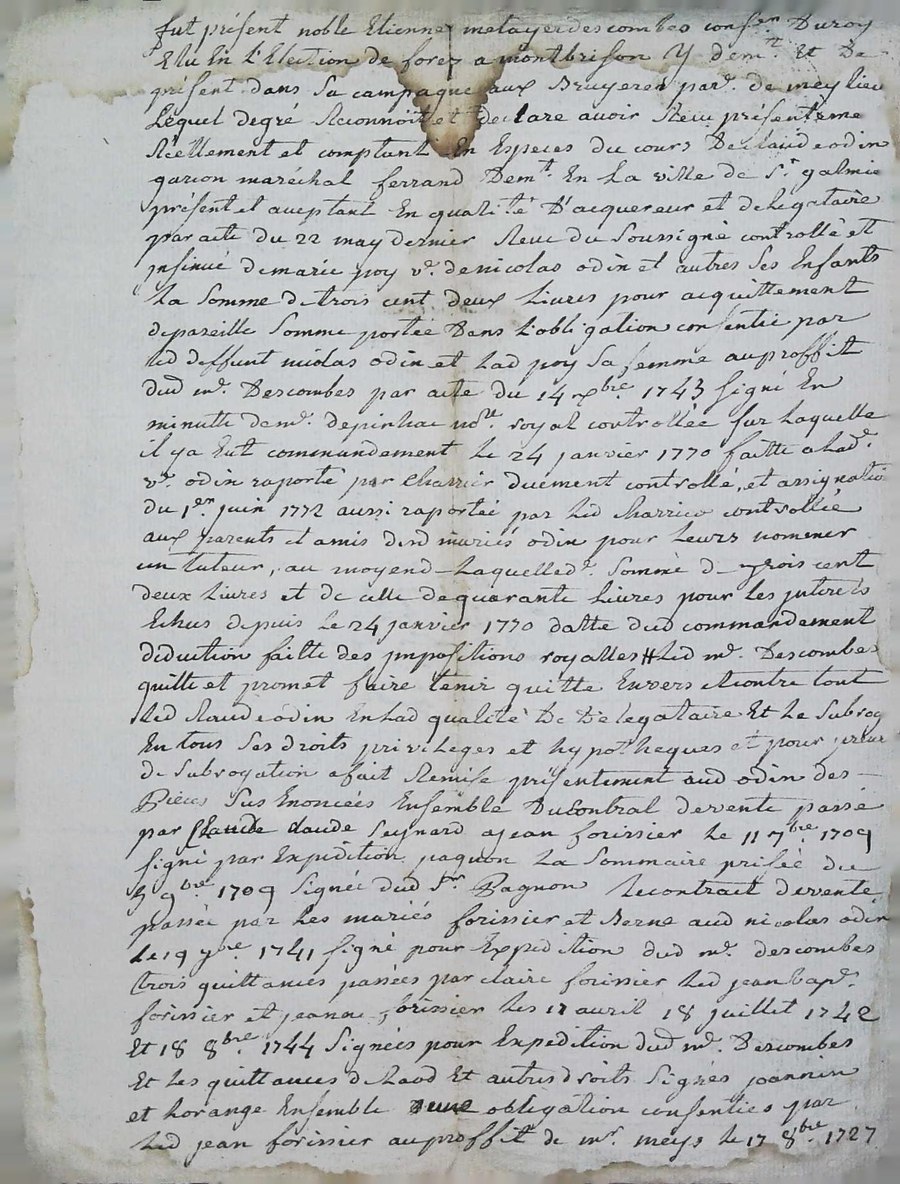 fut présent noble Etienne metayer descombes conser Du roy
Elu En L'Election de forez a montbrison y demt Et De
présent dans Sa campagne aux Bruyeres par. de meylieu
Lequel degré Reconnoit et declare avoir Reçu présenteme
Réellement et comptant En Especes du cours De claude odin
garçon maréchal ferrand Demt. En La ville de St galmie
présent et aceptant En qualité D'acquereur et delegataire
par acte du 22 may dernier Reçu du Soussigné controllé et
insinué de marie poy ve. de nicolas odin et autres Ses Enfants
La Somme de trois cent deux Livres pour acquittement
de pareille Somme portée Dans L'obligation consentie par
led deffunt nicolas odin et Lad poy Sa femme au proffit
dud mr. Descombes par acte du 14 xbre 1743 signé En
minutte de mr. depinhac nore royal controllée sur Laquelle
il y a Eut commandement Le 24 janvier 1770 faitte a Lade.
ve. odin raporté par Charrier duement controllé, et assignatio
du 1er juin 1772 aussi raportée par Led Charrier controllée
aux parents et amis desd mariés odin pour Leurs nommer
un tuteur, au moyend Laquelled. Somme de Trois cent
deux Livres et de celle de quarante Livres pour Les interets
Echus depuis Le 24 janvier 1770 datte dud commandement
deduction faitte des impositions royalles # Led mr. Descombes
quitte et promet faire tenir quitte Envers et contre tout
Led Claude odin En Lad qualité De Delegataire Et Le Subrog
En tous Ses droits privileges et hypotheques et pour
de Subrogation a fait Remise présentement aud odin des
Pièces Sus Enoncées Ensemble Du Contrat de vente passé
par Claude claude Seignard a jean forissier Le 11 7bre 1709
signé par Expedition paquon La Sommaire prisée du
5 9bre 1709 Signée dud Sr Pagnon Le contrait de vente
passée par Les mariés forissier et Berne aud nicolas odin
Le 19 7bre 1741 signé pour Expedition dud mr. descombes
trois quittances passées par claire forissier Led jean bapt.
forissier et jeanne forissier Les 17 avril 18 juillet 1742
Et 18 8bre 1744 Signées pour Expedition dud mr. Descombes
Et Les quittances de Laod Et autres droits Signés joannin
et Lorange Ensemble d'une obligation consenties par
Led jean forissier au proffit de mr. meys Le 17 8bre 1727